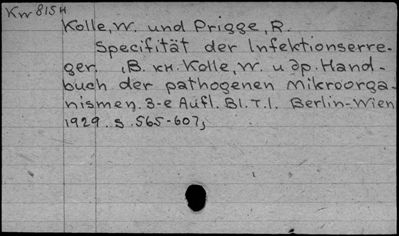 Kw 815H
Kolle, W. und Prigge, R.
Specifität der Infektionserre-
ger. , В. кн. Kolle, W. и др. Hand-
buch der pathogenen Mikroorga-
nismen. 3-е Aufl. Bl. T. I. Berlin-Wien
1929. S. 565-607,